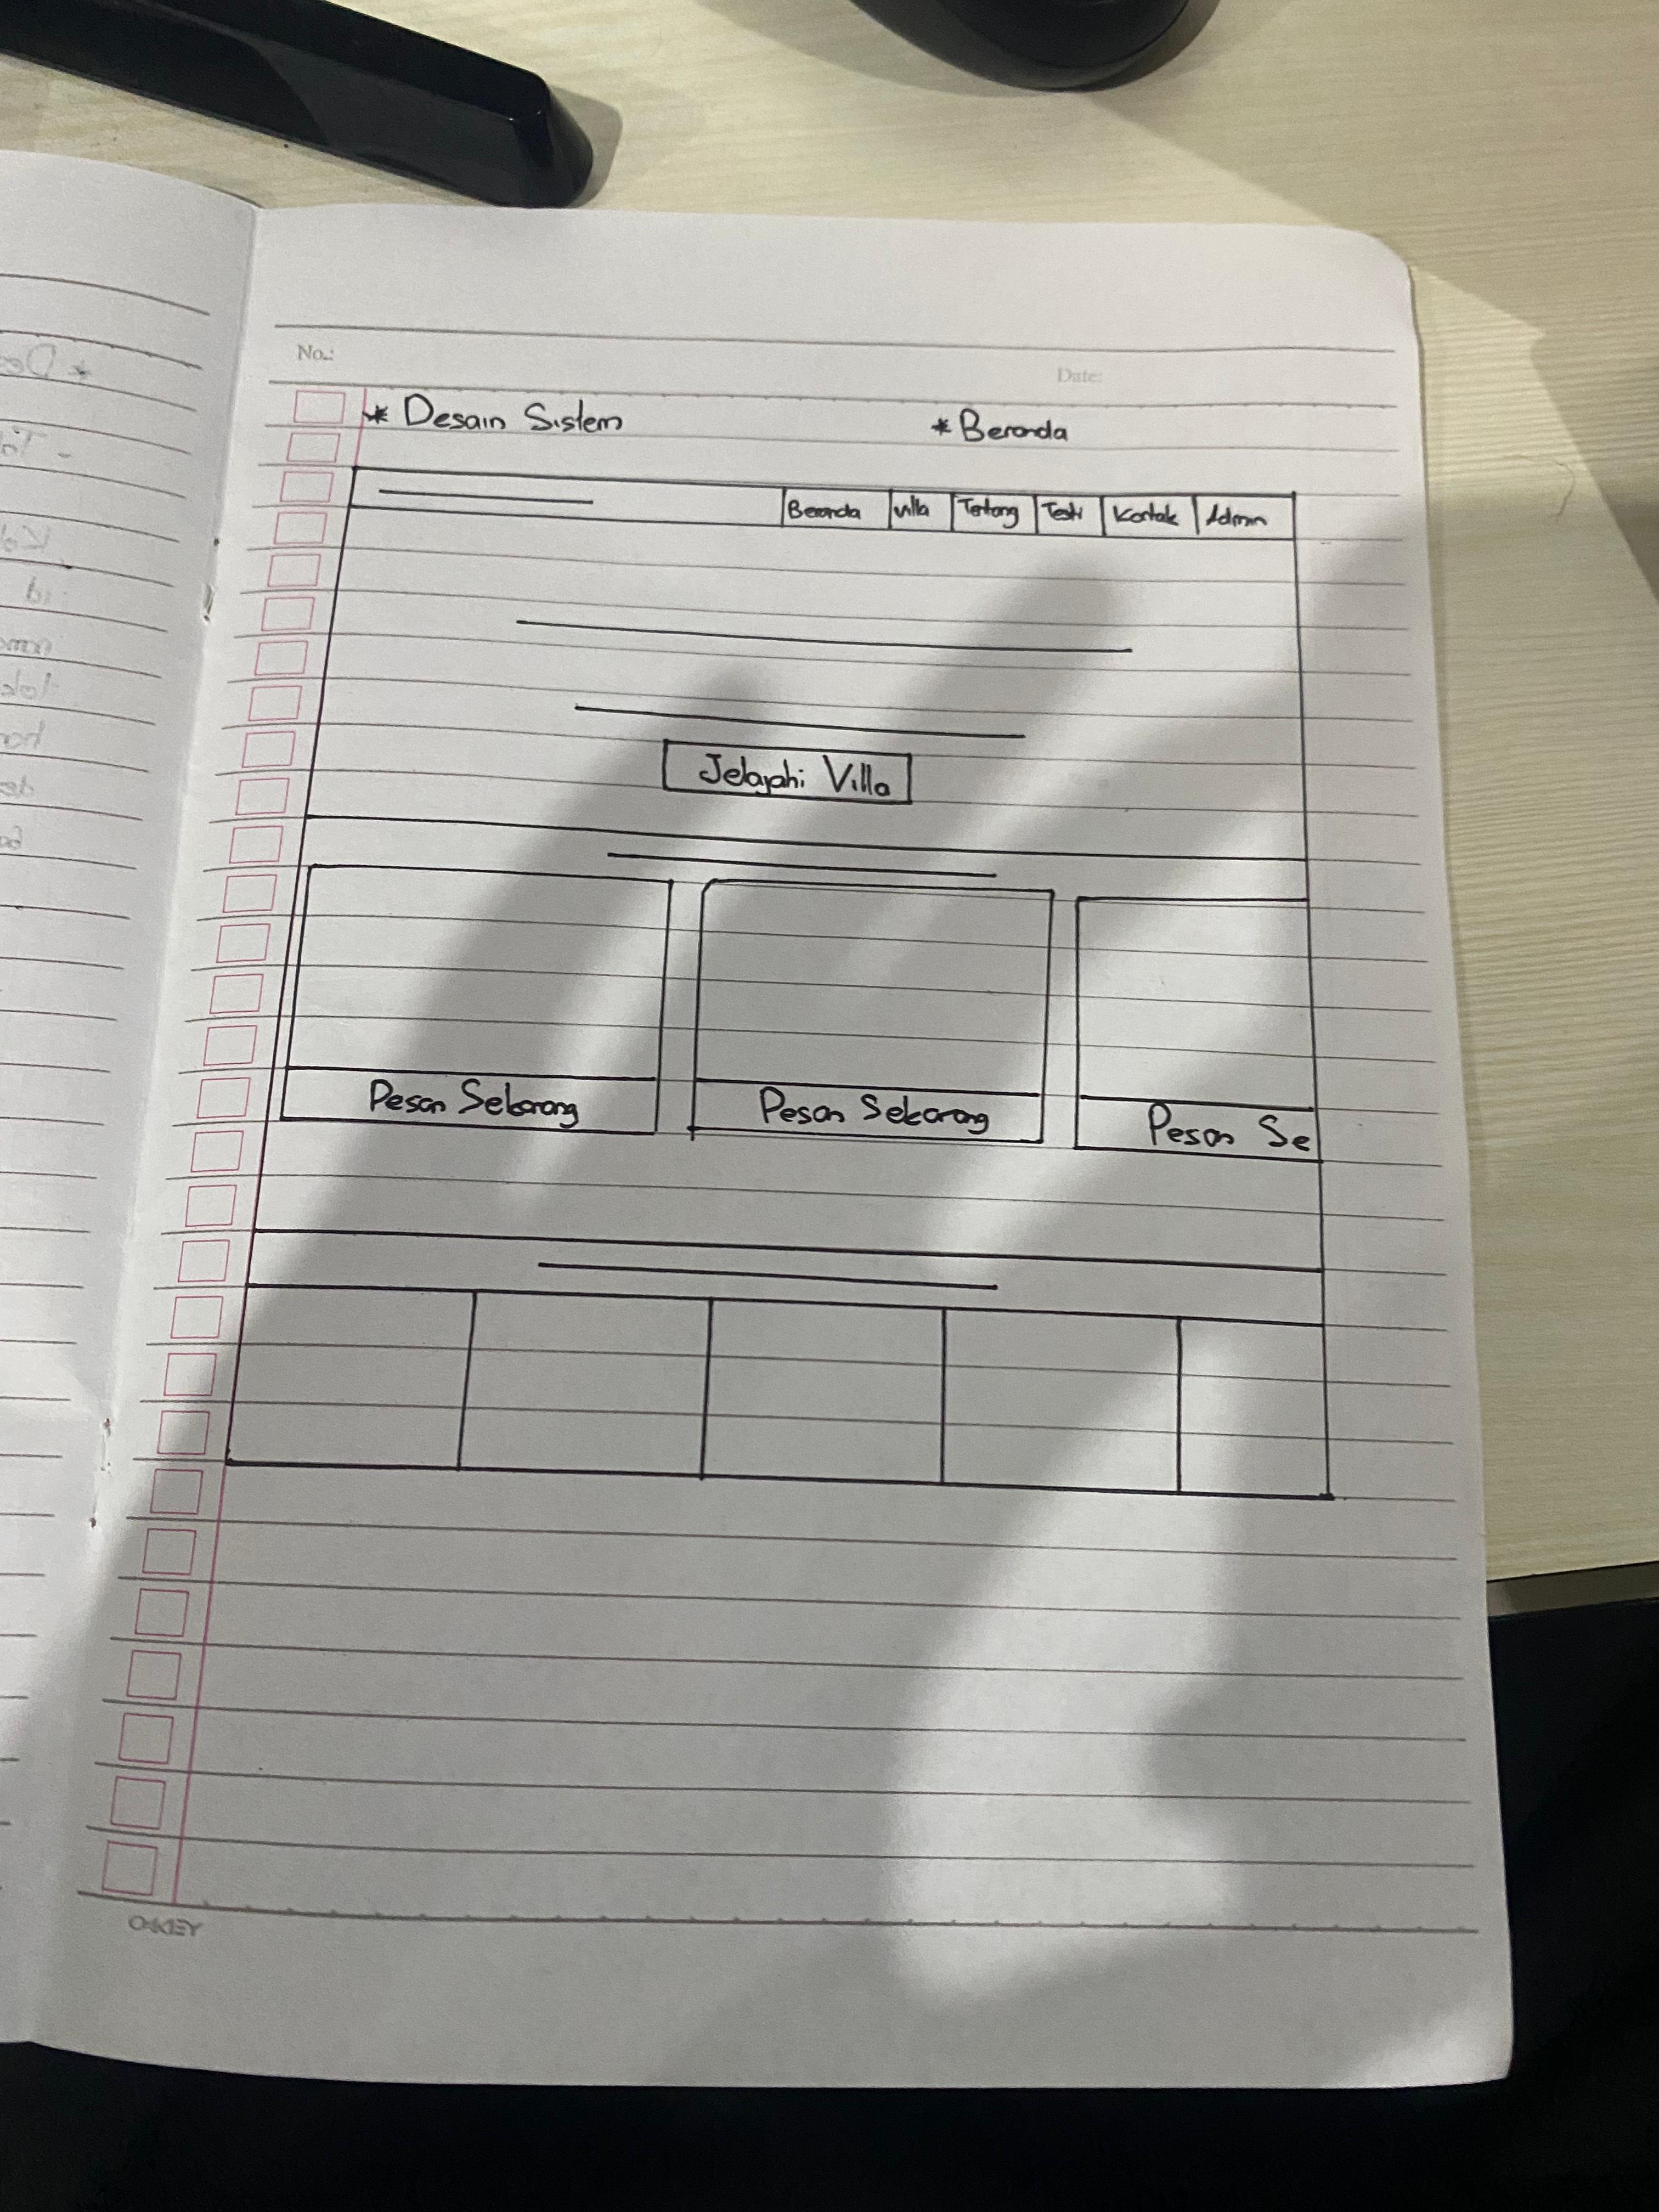 No.:
Date:
* Desain Sistem
* Beranda
Beranda villa Tentang Testi Kontak Admin
Jelajahi Villa
Pesan Sekarang Pesan Sekarang Pesan Se
OAKEY